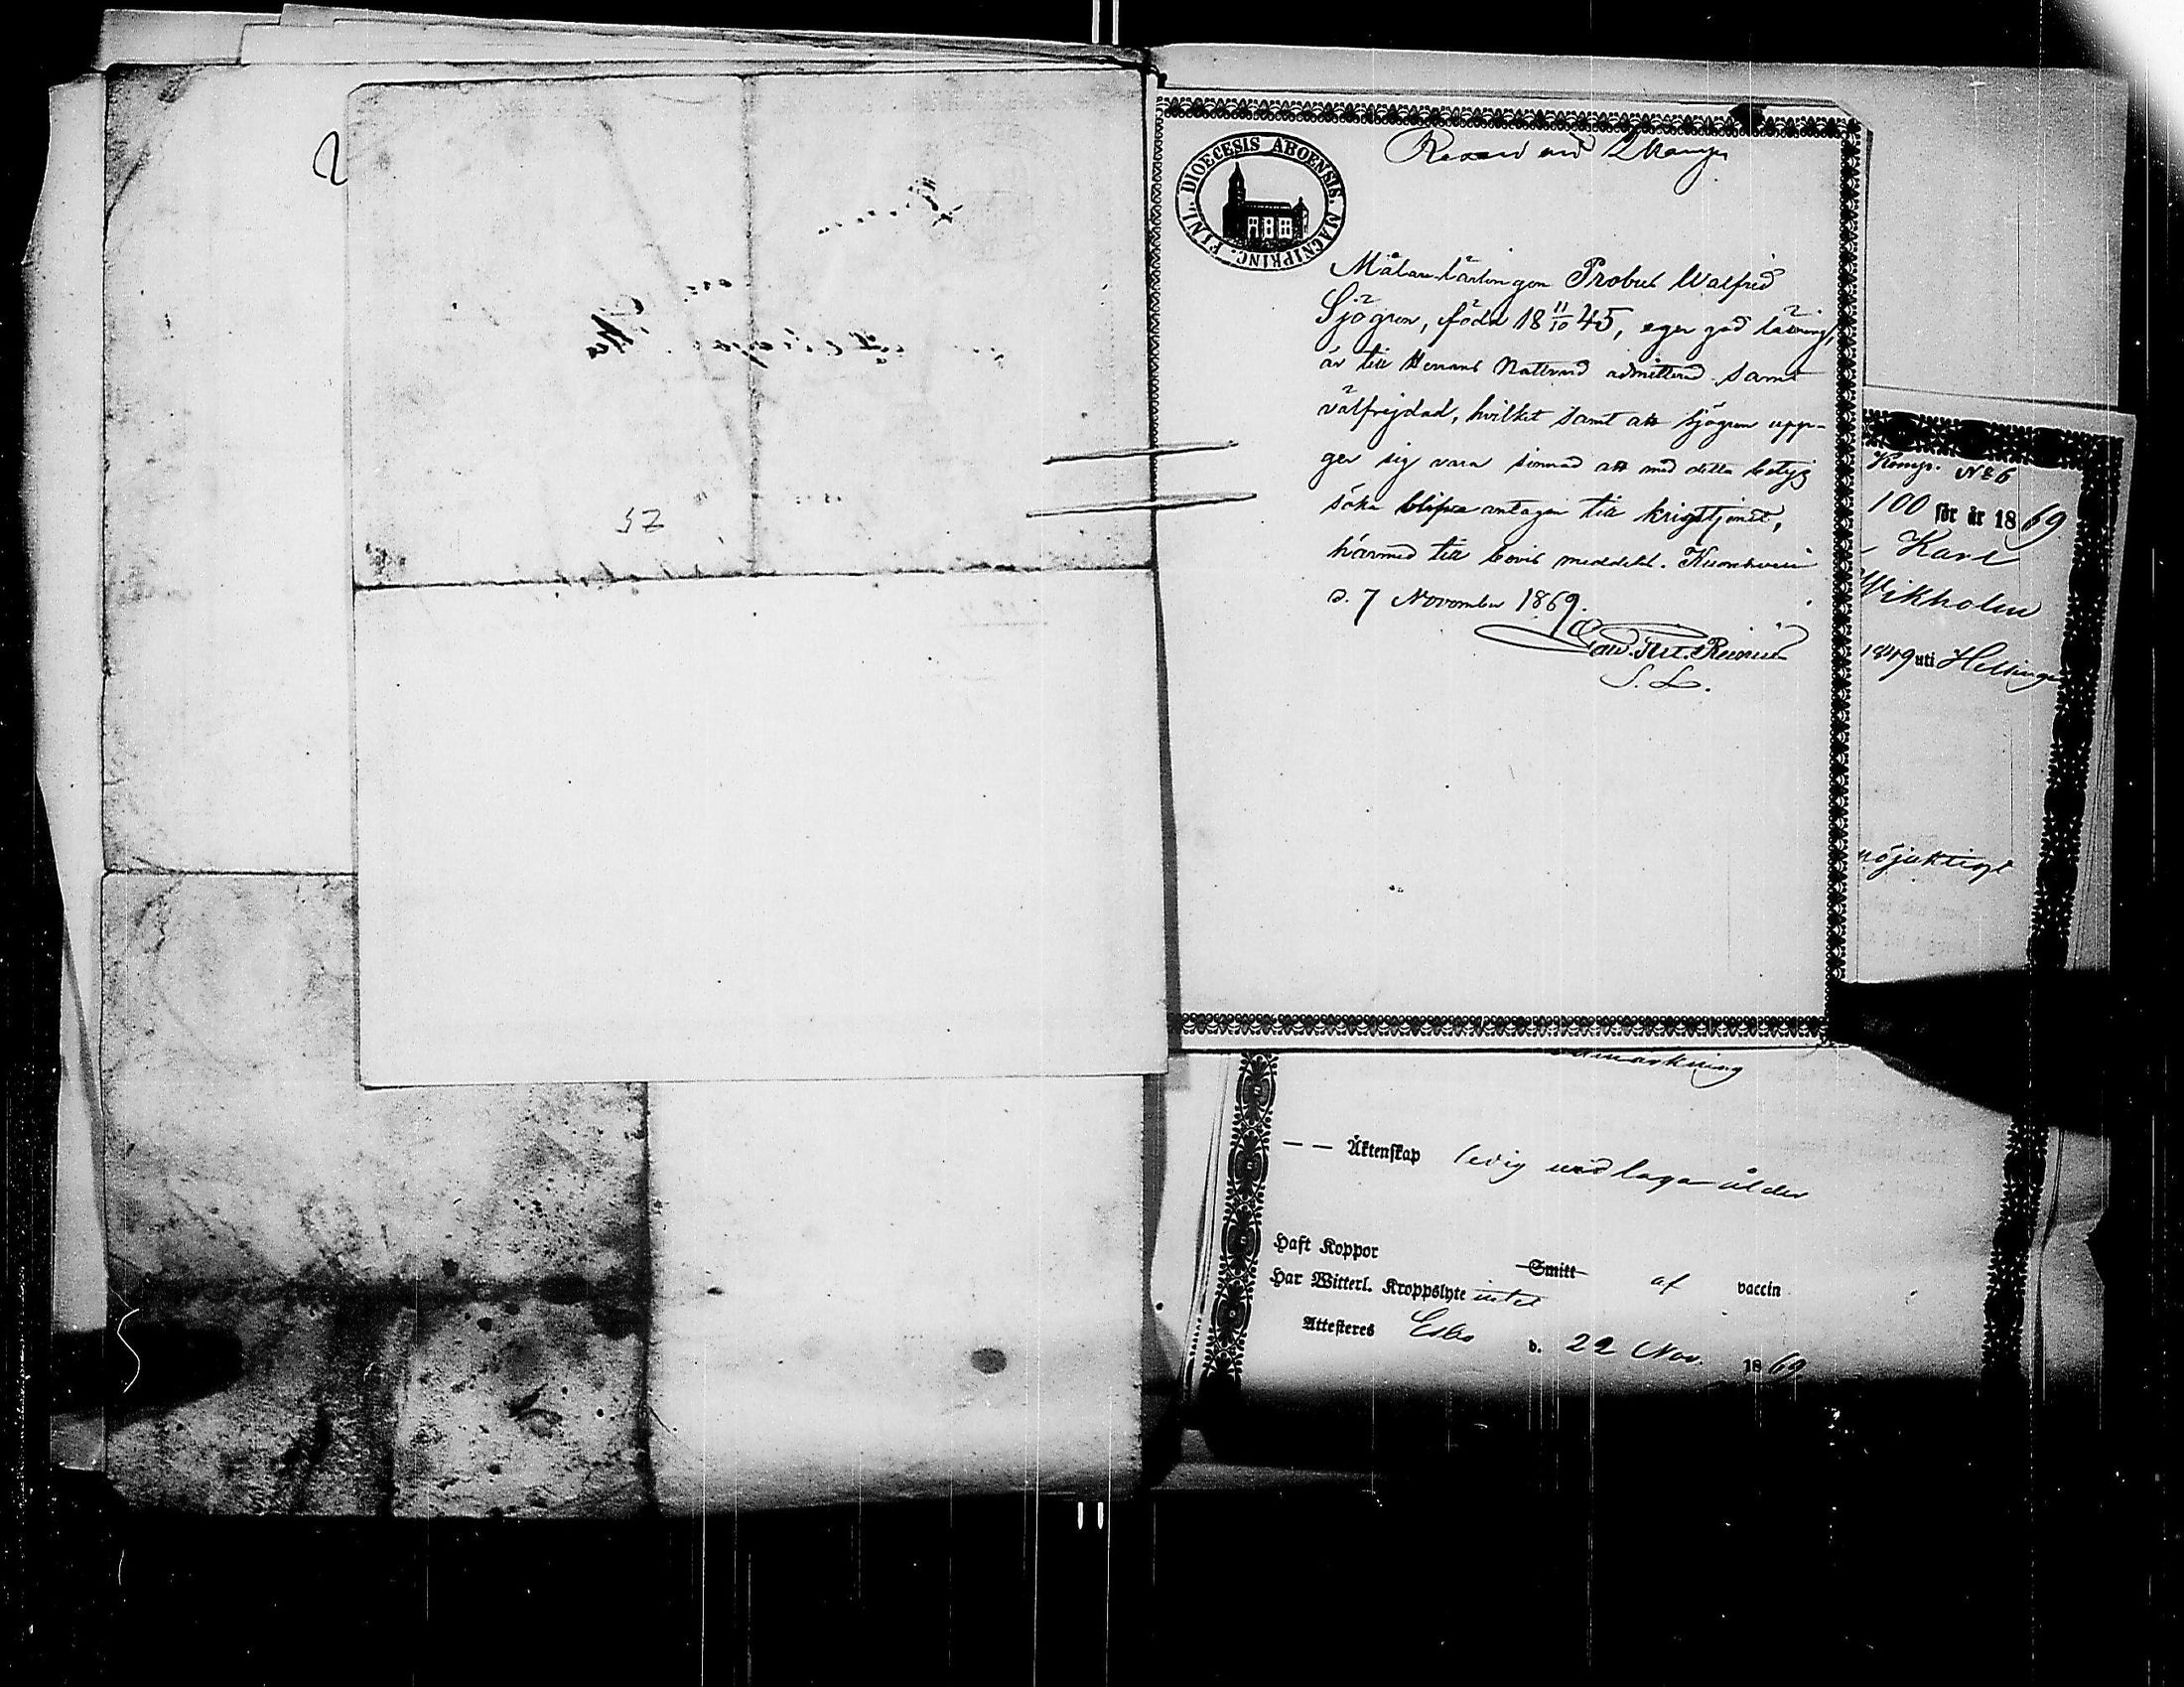 2
57
FINL. DIOECESIS ABOENSIS MAGNIPRINC.
Målare lärlingen Probus Walfrid
Sjögren, född 18 11/10 45, eger god läsning,
är till Herrans Nattvard admitterad samt
välfrejdad, hvilket samt att Sjögren upp-
ger sig vara sinnad att med detta betyg
söka blifva antagen till krigstjenst,
härmed till bevis meddelas.
d. 7 November 1869.
S. L.
Komp. No 6
100 för år 1869
Karl
Wikholm
1849 uti Helsinge
nöjaktigt
anmärkning
— — Äktenskap ledig med laga ålder
Haft Koppor Smitt af vaccin
Har Witterl. Kroppslyte intet
Attesteres Esbo d. 22 Nov. 1869